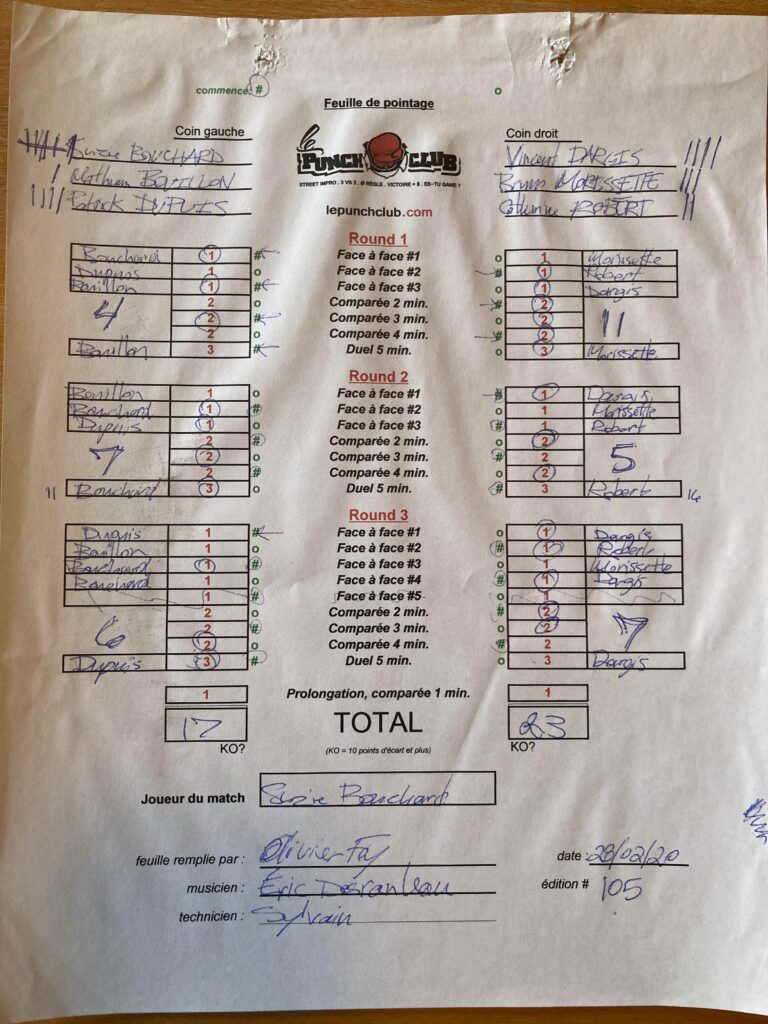 commence: # o
Feuille de pointage
Coin gauche Coin droit
Suzie BOUCHARD Vincent DARGIS
Mathieu BOUILLON Bruno MORISSETTE
Patrick DUPUIS Catherine ROBERT
le PUNCH CLUB
STREET IMPRO . 3 VS 3 . Ø RÈGLE . VICTOIRE = $ . ES-TU GAME ?
lepunchclub.com
Round 1
Bouchard 1 # Face à face #1 o 1 Morissette
Dupuis 1 o Face à face #2 # 1 Robert
Bouillon 1 # Face à face #3 o 1 Dargis
4 2 o Comparée 2 min. # 2 11
2 # Comparée 3 min. o 2
2 o Comparée 4 min. # 2
Bouillon 3 # Duel 5 min. o 3 Morissette
Round 2
Bouillon 1 o Face à face #1 # 1 Dargis
Bouchard 1 # Face à face #2 o 1 Morissette
Dupuis 1 o Face à face #3 # 1 Robert
7 2 # Comparée 2 min. o 2 5
2 o Comparée 3 min. # 2
2 # Comparée 4 min. o 2
11 Bouchard 3 o Duel 5 min. # 3 Robert 16
Round 3
Dupuis 1 # Face à face #1 o 1 Dargis
Bouillon 1 o Face à face #2 # 1 Robert
Bouchard 1 # Face à face #3 o 1 Morissette
Bouchard 1 o Face à face #4 # 1 Dargis
1 # Face à face #5 o 1
6 2 o Comparée 2 min. # 2 7
2 # Comparée 3 min. o 2
2 o Comparée 4 min. # 2
Dupuis 3 # Duel 5 min. o 3 Dargis
1 Prolongation, comparée 1 min. 1
17 TOTAL 23
KO? (KO = 10 points d'écart et plus) KO?
Joueur du match Suzie Bouchard
feuille remplie par : Olivier Fay date : 28/02/20
musicien : Éric Desranleau édition # 105
technicien : Sylvain